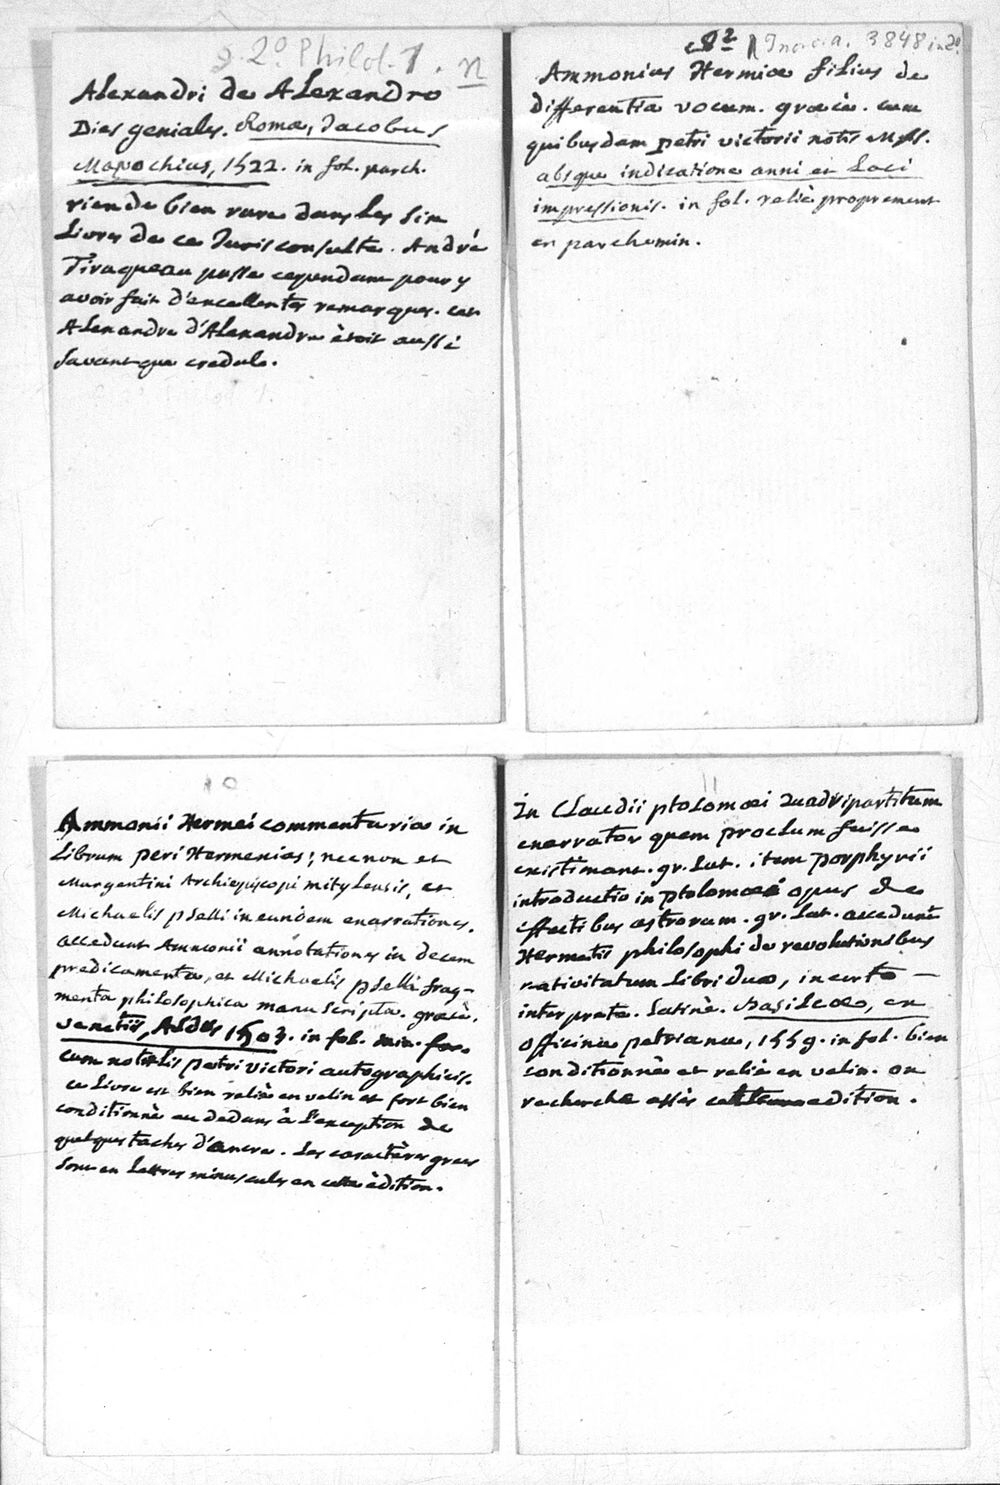 2.° Philol. 1. n
Alexandri de Alexandro
Dies geniales. Romæ, Jacobus
Mazochius, 1522. in fol. parch.
rien de bien rare dans les Six
Livres de ce Jurisconsulte. André
Tiraqueau passe cependant pour y
avoir fait d'excellentes remarques. car
Alexandre d'Alexandre ètoit aussi
savant que credule.
8² Inc. c. a. 3848 in 2°.
Ammonius Hermiæ filius de
differentia vocum. græcè. cum
quibusdam petri victorii notis Mss.
absque indicatione anni et Loci
impressionis. in fol. reliè proprement
en parchemin.
10
Ammonii Hermei commentaria in
Librum peri Hermenias; necnon et
Margentini Archiepiscopi mitylensis, et
Michaelis pselli in eundem enarrationes.
accedunt Ammonii annotationes in decem
predicamenta, et Michaelis pselli frag-
menta philosophica manuscripta. græcè.
venetiis, Aldus 1503. in fol. min. for.
cum notulis petri victori autographicis.
ce Livre est bien relié en velin et fort bien
conditionnè au dedans à l'exception de
quelques taches d'ancre. Les caractères grecs
sont en Lettres minuscules en cette èdition.
11
In Claudii ptolomæi quadripartitum
enarrator quem proclum fuisse
existimant. gr. Lat. item porphyrii
introductio in ptolomæi opus de
effectibus astrorum. gr. Lat. accedunt
Hermetis philosophi de revolutionibus
nativitatum Libri duo, incerto
interprete. Latinè. Basileæ, ex
officina petriana, 1559. in fol. bien
conditionnè et relié en velin. on
recherche assès cette edition.